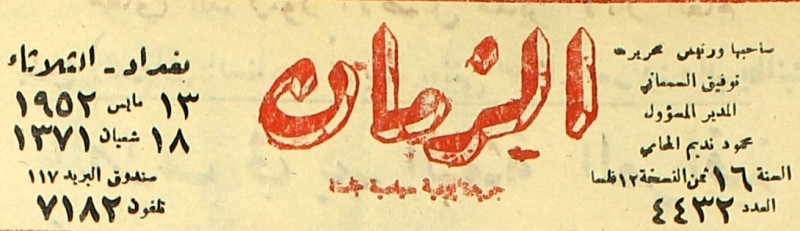 صاحبها ورئيس تحريرها
توفيق السمعاني
المدير المسؤول
محمود نديم المحامي
السنة ١٦ ثمن النسخة ١٢ فلسا
العدد ٤٤٣٢
الزمان
بغداد - الثلاثاء
١٣ مايس ١٩٥٢
١٨ شعبان ١٣٧١
صندوق البريد ١١٧
تلفون ٧١٨٢